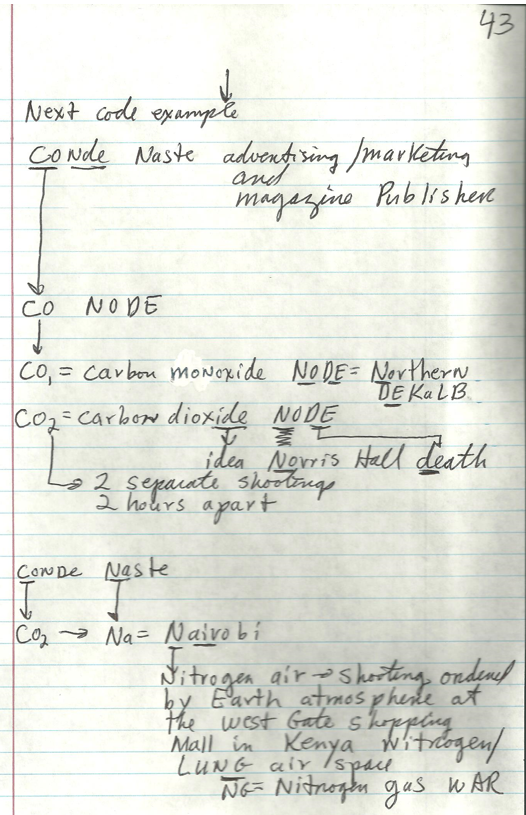 43
Next code example
CONde Naste advertising/marketing
and
magazine Publisher
CO NODE
CO1 = carbon monoxide NODE = Northern
DEKaLB
CO2 = carbon dioxide NODE
idea Norris Hall death
2 separate shootings
2 hours apart
CONDE Naste
CO2 → Na = Nairobi
Nitrogen air → shooting ordered
by Earth atmosphere at
the west Gate shopping
Mall in Kenya Nitrogen/
LUNG air space
NG = Nitrogen gas WAR